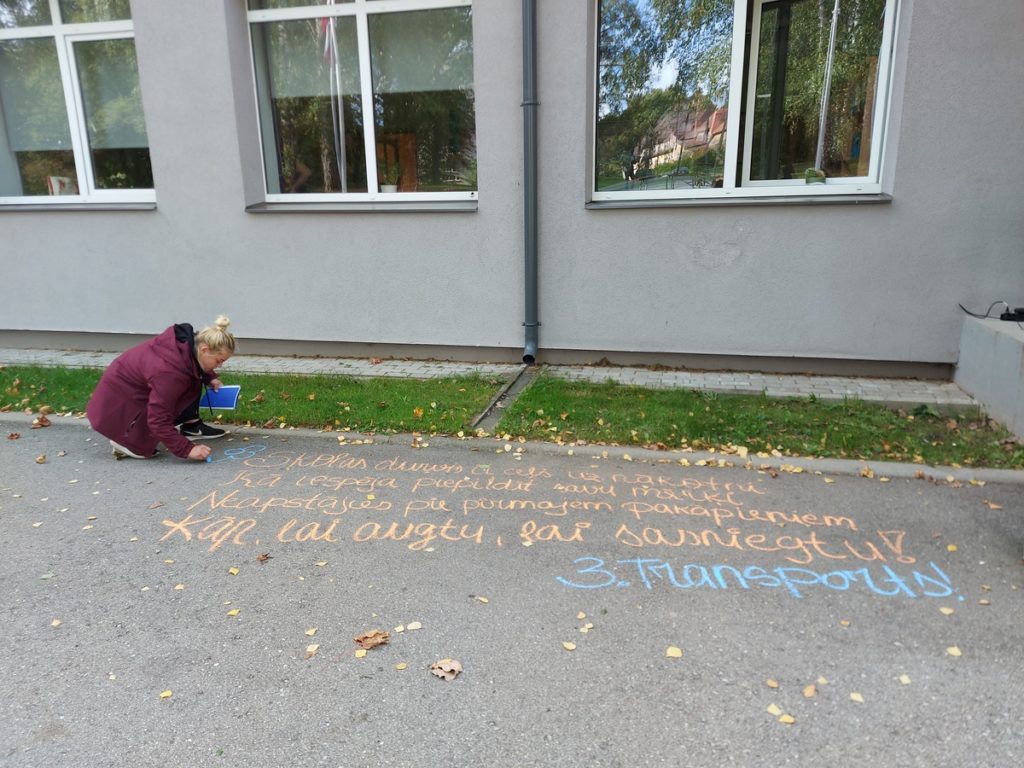 Skolas durvis ir ceļš uz nākotni
Kā iespēja piepildīt savu mērķi.
Neapstājies pie pirmajiem pakāpieniem
Kāp, lai augtu, lai sasniegtu!
3. Transports!